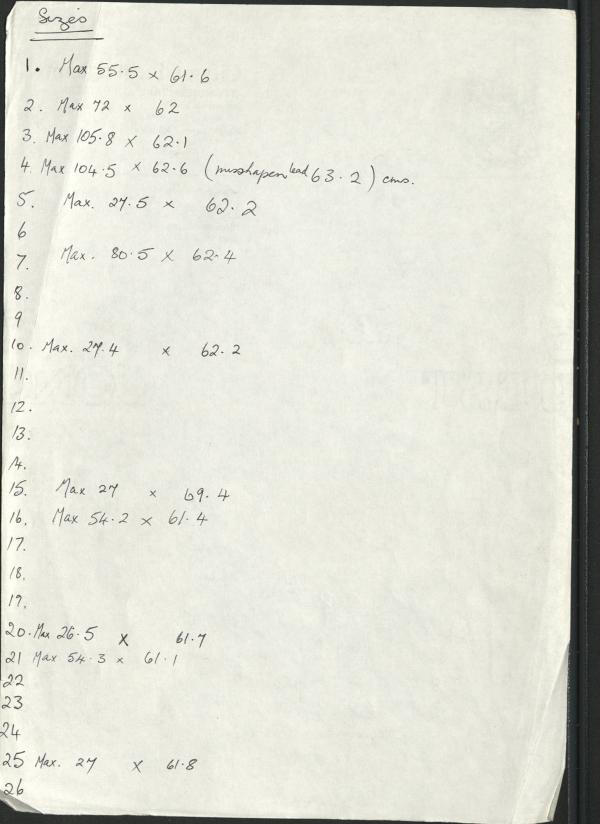 Sizes
1. Max 55.5 x 61.6
2. Max 72 x 62
3. Max 105.8 x 62.1
4. Max 104.5 x 62.6 (misshapen lead 63.2) cms.
5. Max. 27.5 x 62.2
6
7. Max. 80.5 x 62.4
8.
9
10. Max. 27.4 x 62.2
11.
12.
13.
14.
15. Max 27 x 69.4
16. Max 54.2 x 61.4
17.
18.
19.
20. Max 26.5 x 61.7
21 Max 54.3 x 61.1
22
23
24
25 Max. 27 x 61.8
26